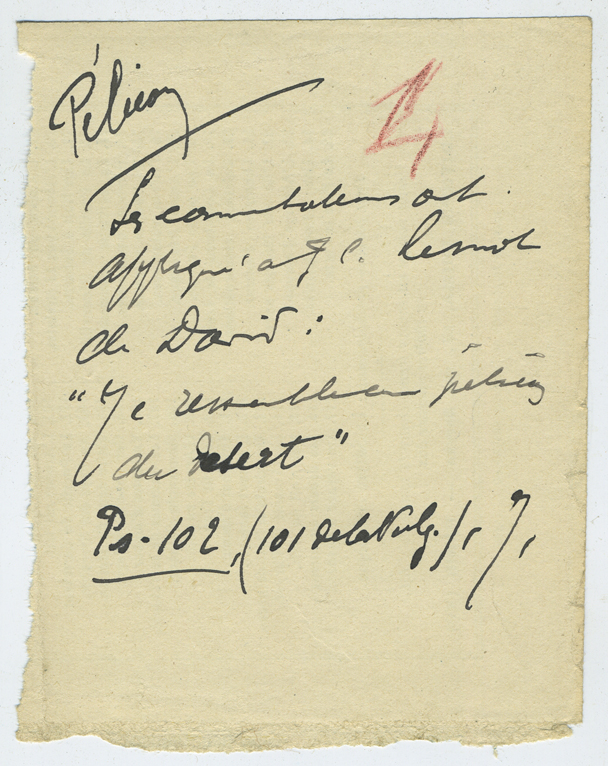 Pélican
4
Les commentateurs ont
appliqué à J C. le mot
de David :
"Je ressemble au pélican
du désert"
Ps-102, (101 de la Vulg.), 7,